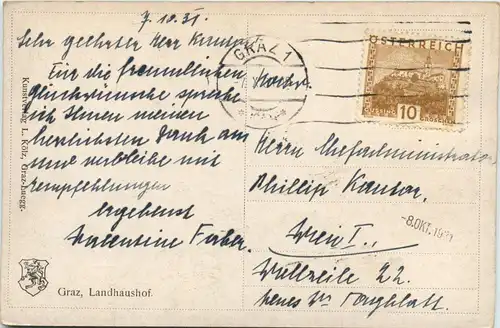 7.10.31.
Sehr geehrter Herr Kantor!
Für die freundlichen
Glückwünsche spreche
ich Ihnen meinen
herzlichsten Dank aus
und verbleibe mit
Empfehlungen
ergebenst
Valentine Faber.
Kunstverlag L. Kölz, Graz-Luegg.
Graz, Landhaushof.
GRAZ 1
ÖSTERREICH
10
GROSCHEN
Herrn Chefadministrator
Phillip Kantor,
Wien I.,
-8.OKT.1931
Wollzeile 22.
Neues Wr Tagblatt.